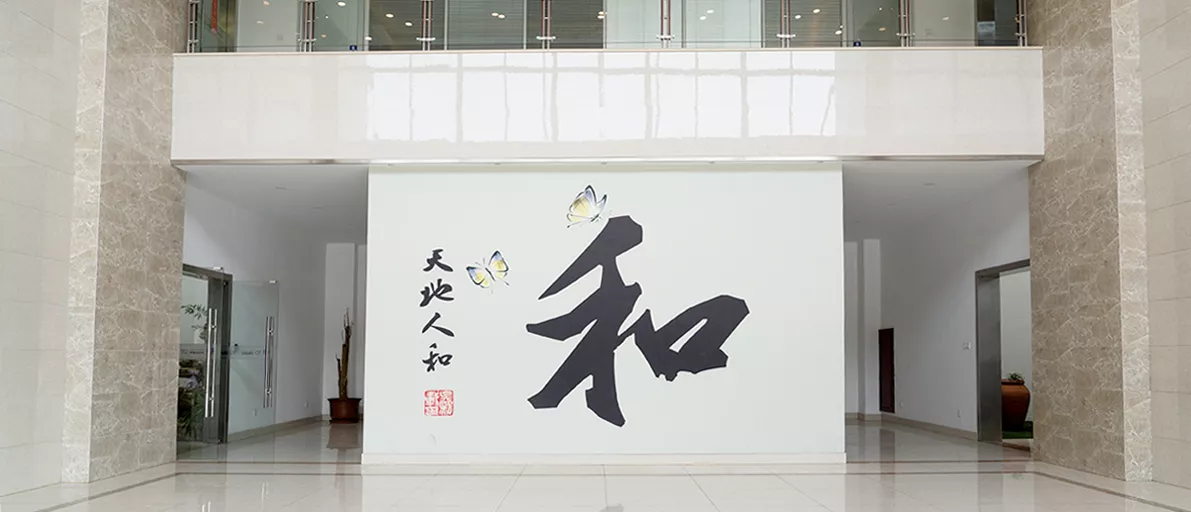 和
天地人和